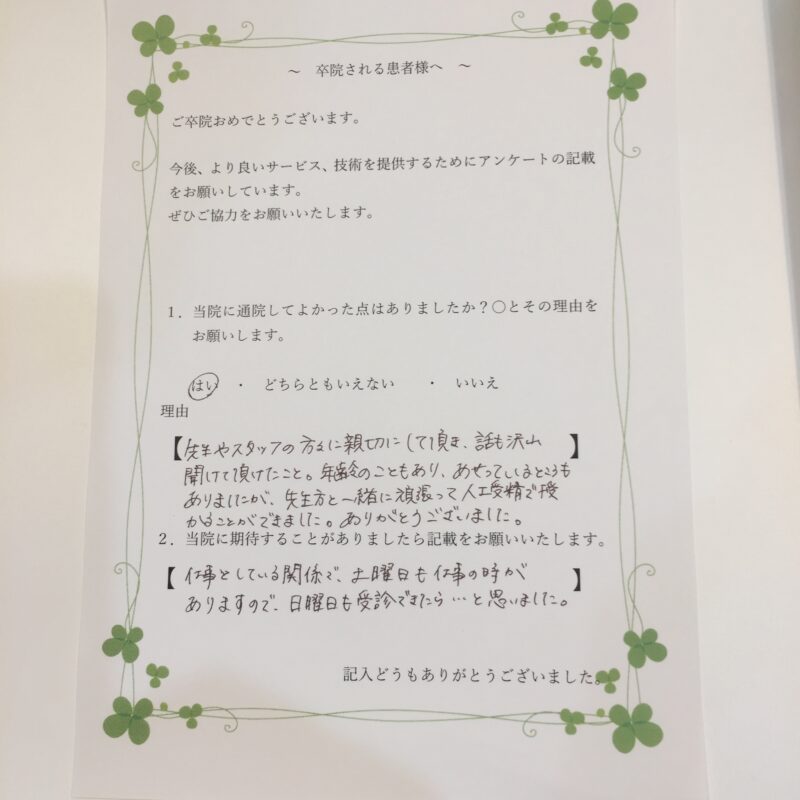 ～ 卒院される患者様へ ～
ご卒院おめでとうございます。
今後、より良いサービス、技術を提供するためにアンケートの記載
をお願いしています。
ぜひご協力をお願いいたします。
1．当院に通院してよかった点はありましたか？〇とその理由を
お願いします。
はい ・ どちらともいえない ・ いいえ
理由
【先生やスタッフの方々に親切にして頂き、話も沢山】
聞けて頂けたこと。年齢のこともあり、あせっているところも
ありましたが、先生方と一緒に頑張って人工受精で授
かることができました。ありがとうございました。
2．当院に期待することがありましたら記載をお願いいたします。
【仕事としている関係で、土曜日も仕事の時が】
ありますので、日曜日も受診できたら…と思いました。
記入どうもありがとうございました。